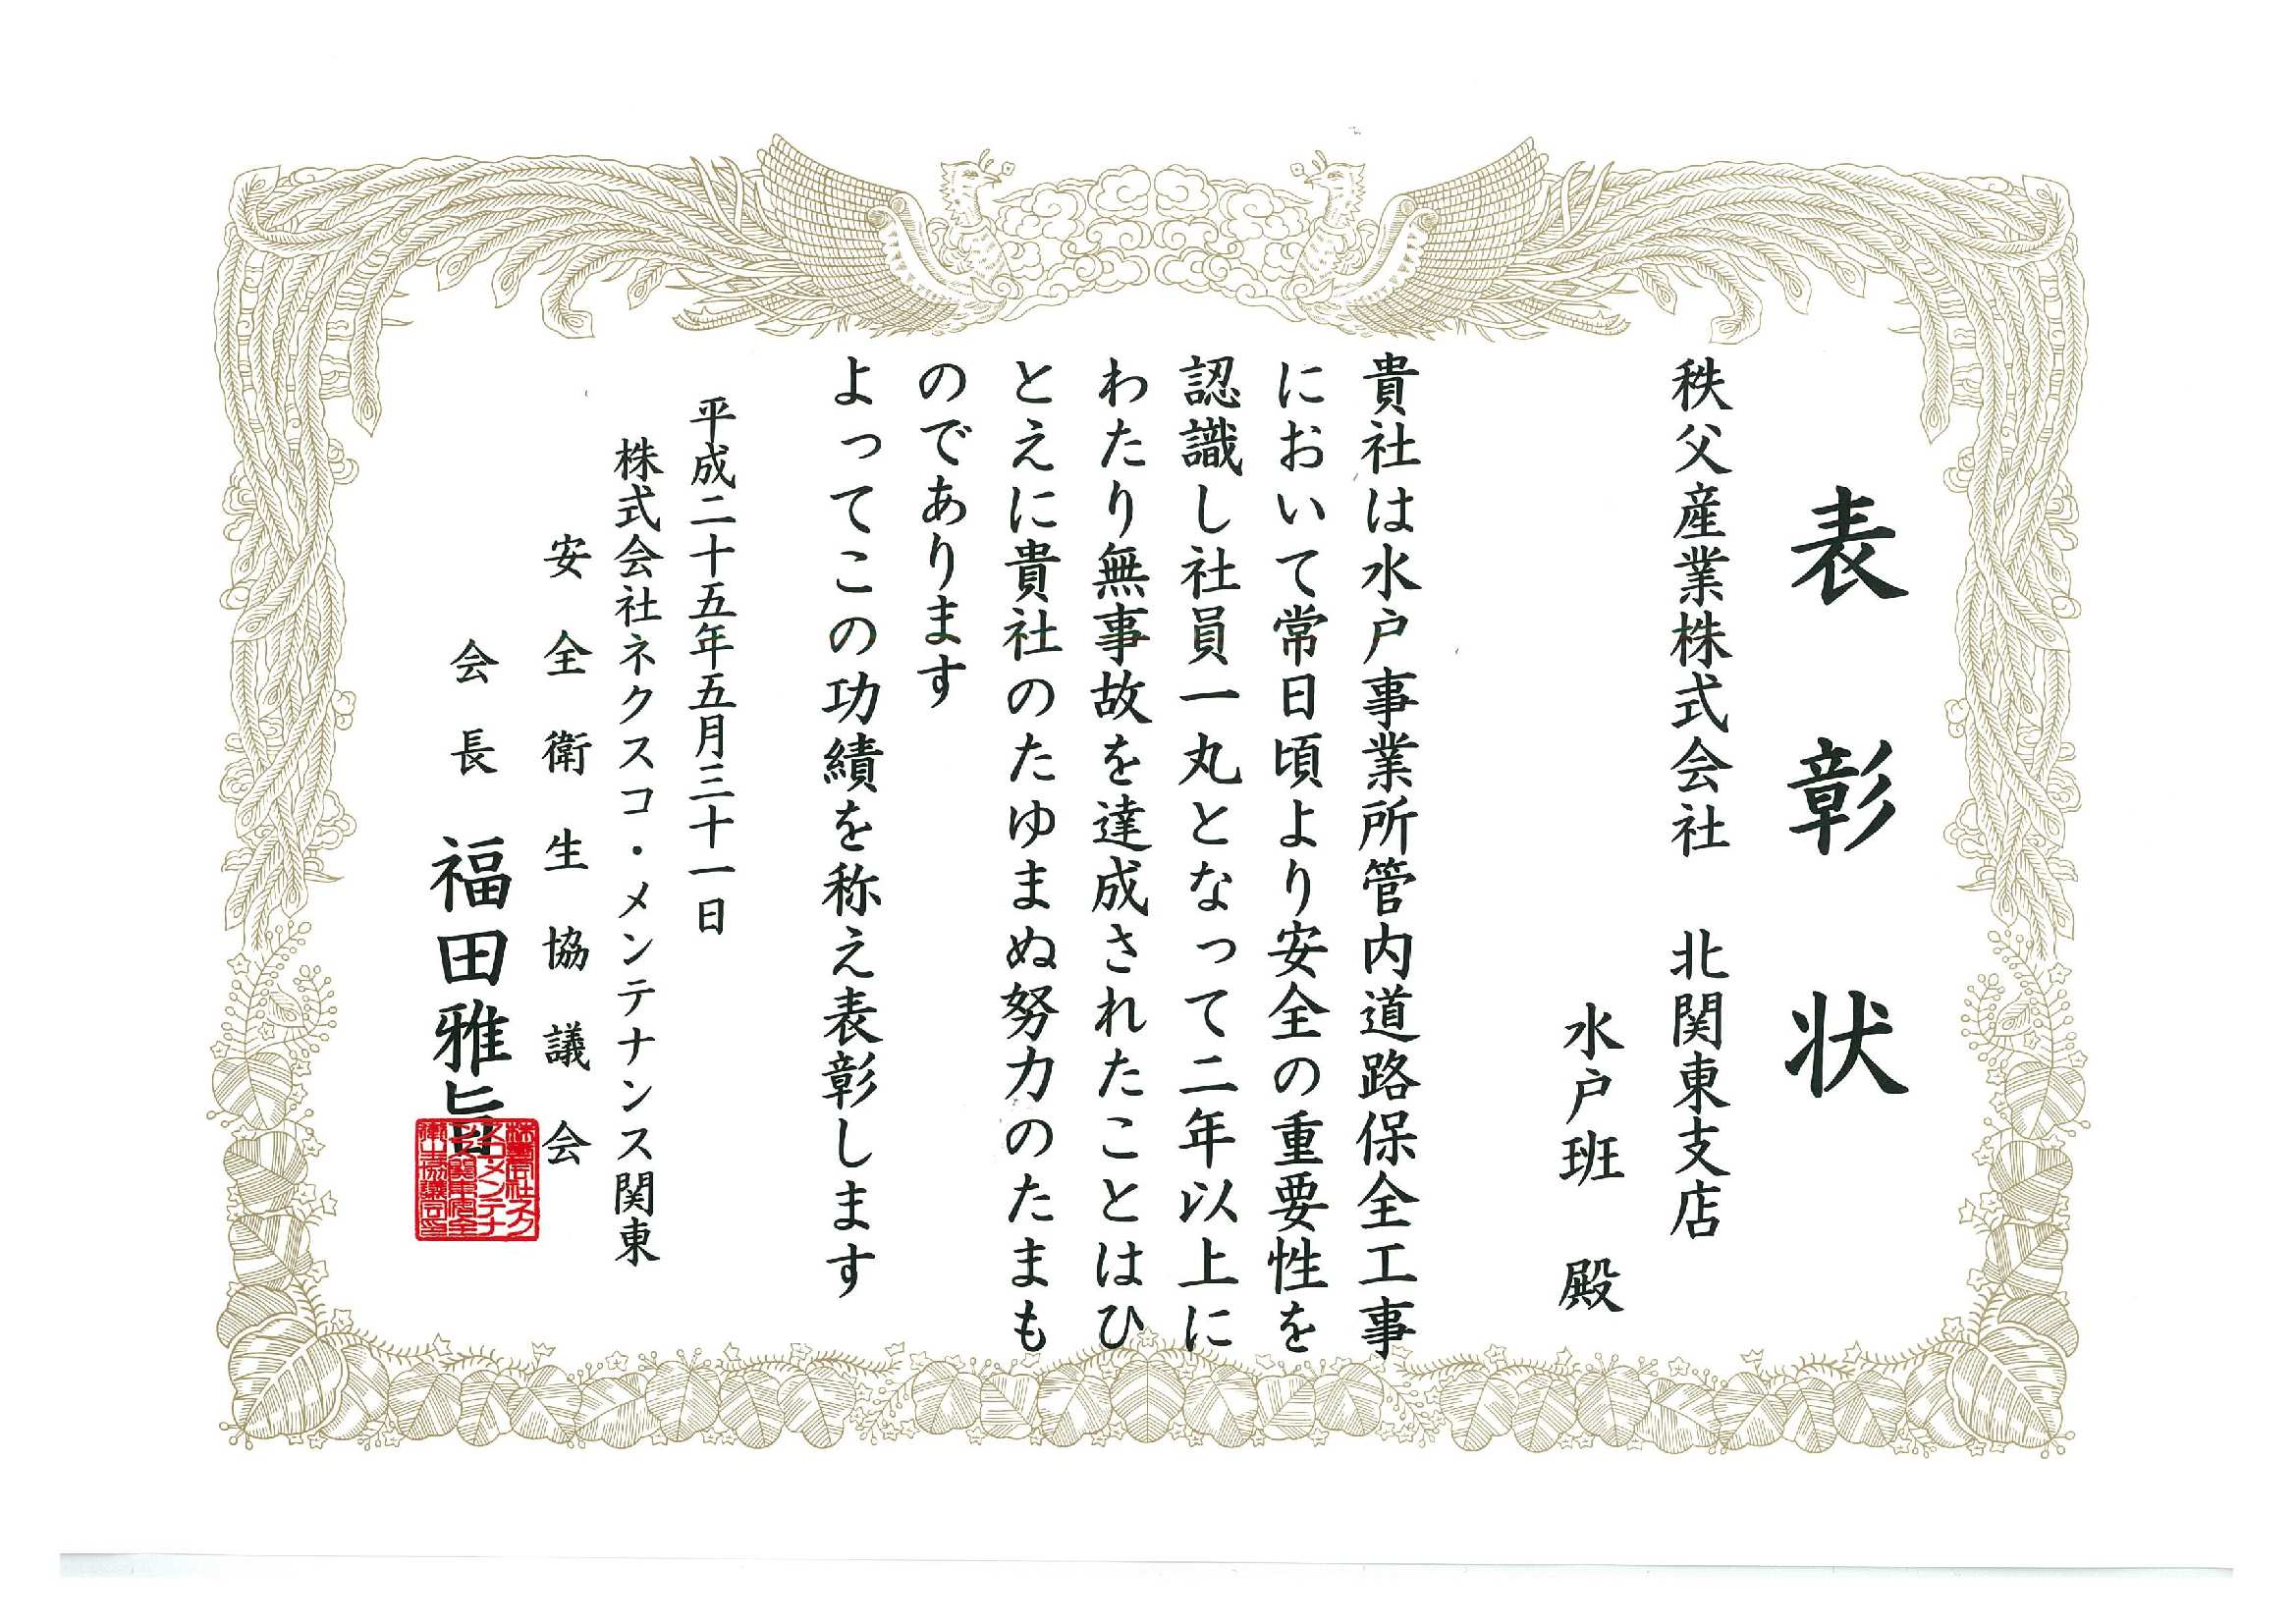 表彰状
秩父産業株式会社　北関東支店
水戸班　殿
貴社は水戸事業所管内道路保全工事
において常日頃より安全の重要性を
認識し社員一丸となって二年以上に
わたり無事故を達成されたことはひ
とえに貴社のたゆまぬ努力のたまも
のであります
よってこの功績を称え表彰します
平成二十五年五月三十一日
株式会社ネクスコ・メンテナンス関東
安全衛生協議会
会長　福田雅旨